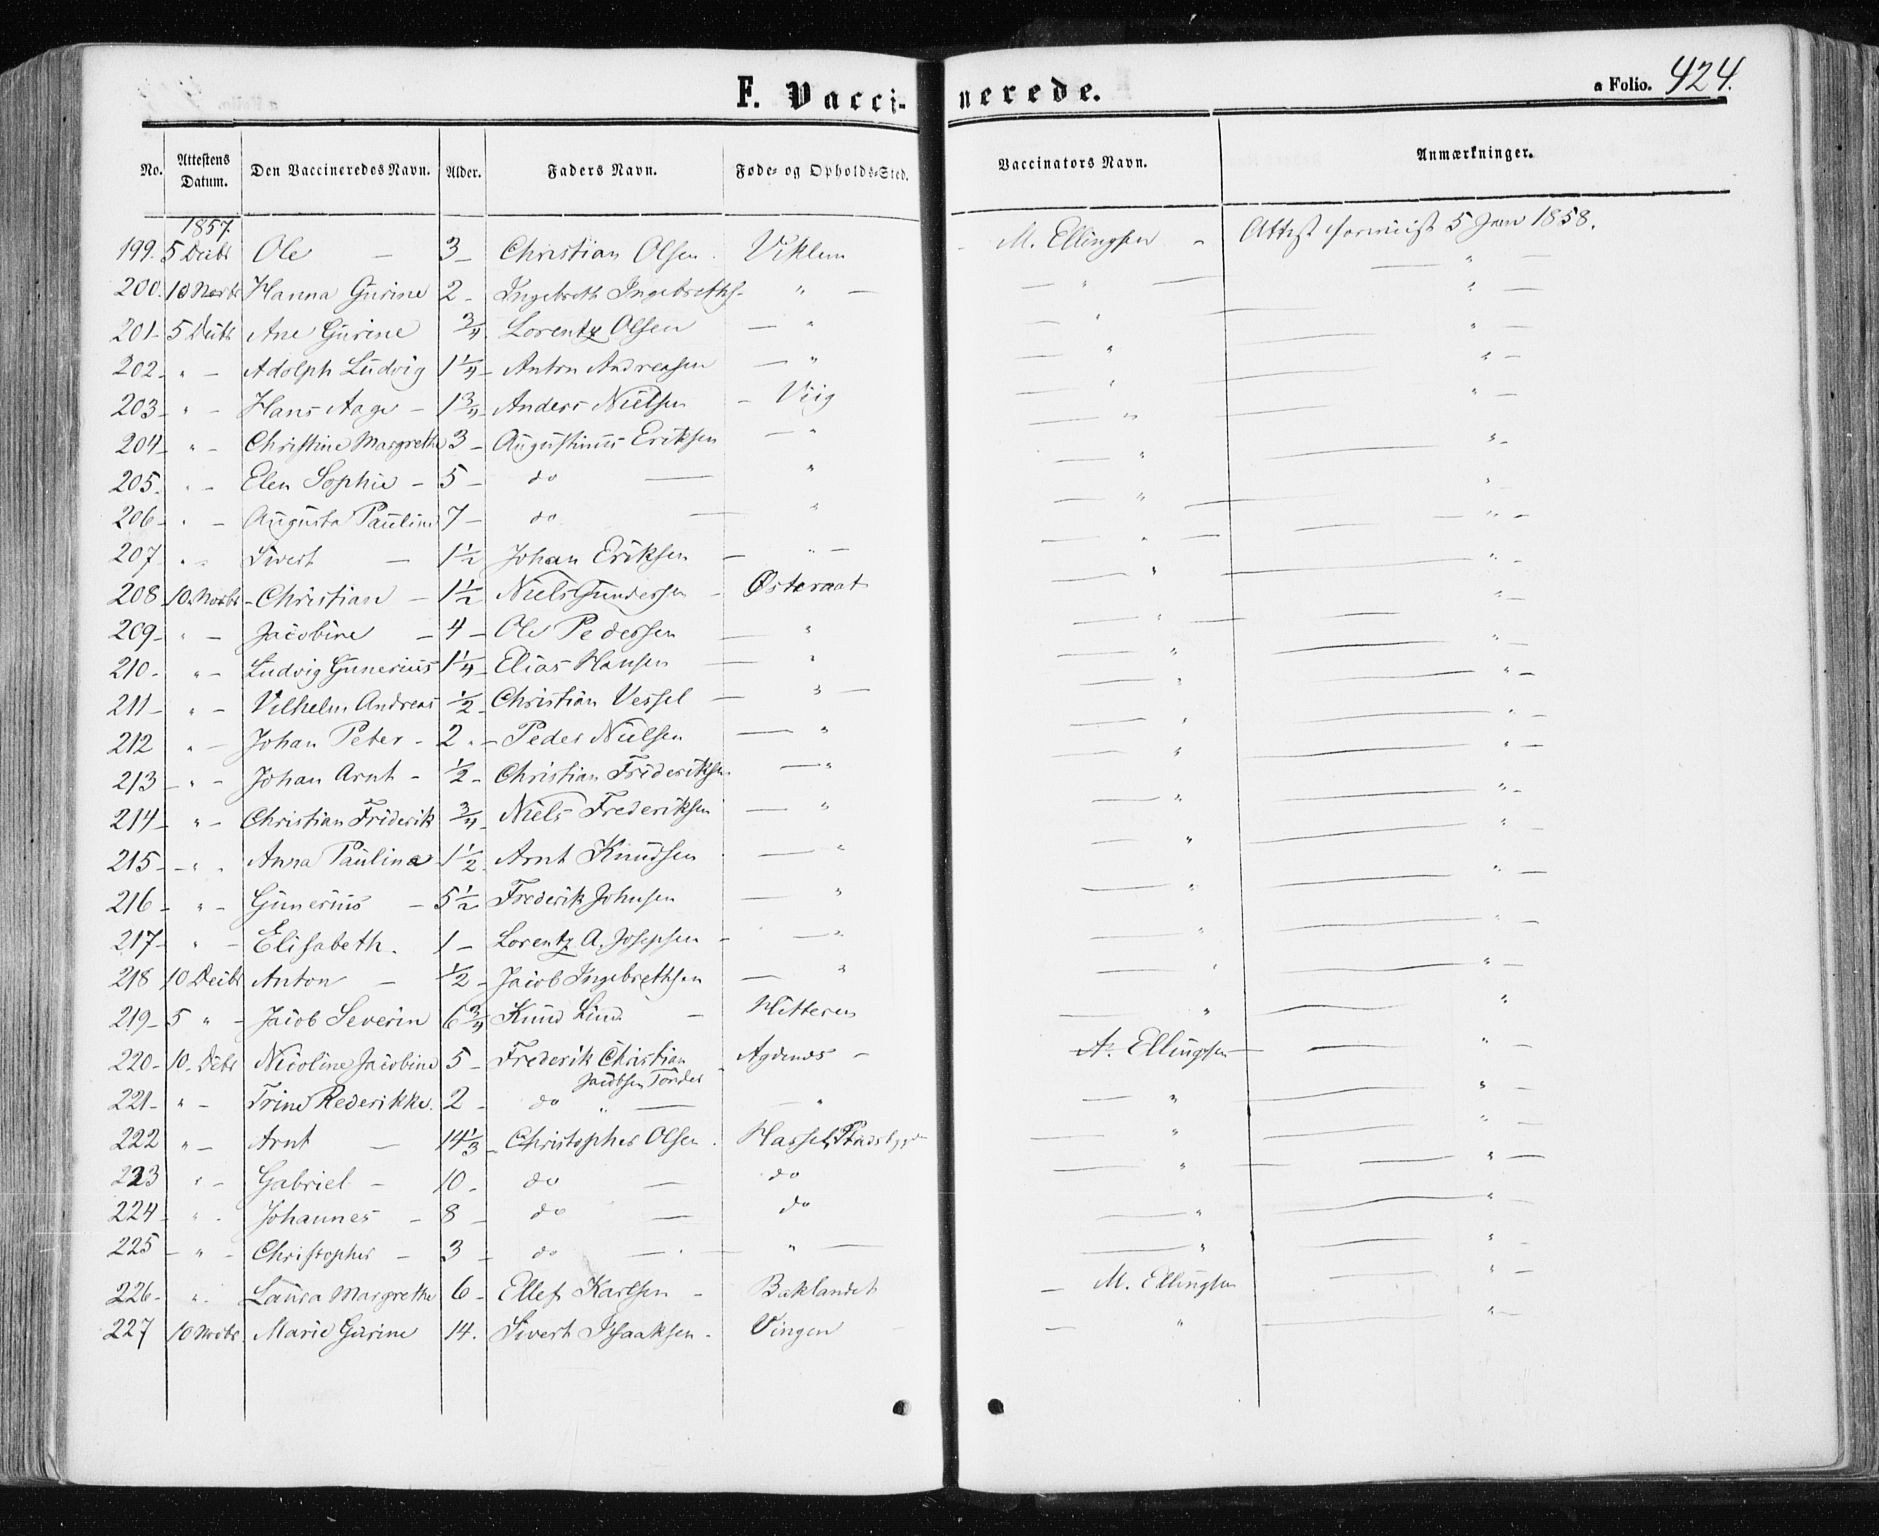 F. Vaccinerede.
a Folio. 424.
No. Attestens Datum. Den Vaccineredes Navn. Alder. Faders Navn. Føde- og Opholds-Sted. Vaccinators Navn. Anmærkninger.
1857.
199. 5 Decbr Ole — 3 — Christian Olsen. Viklem — M. Ellingsen — Attest 5 Jan 1858.
200. 10 Hanna Gurine 2 - Ingebreth Ingebreths. " — — " — — " —
201 - 5 Decbr Ane Gurine 3/4. Lorentz Olsen — " — " — " —
202 - " — Adolph Ludvig 1 1/4 - Anton Andreasen — " — " — " —
203 - " - Hans Aage - 1 3/4 - Anders Nielsen - Viig — " — " —
204 - " - Christine Margrethe 3 - Augustinus Eriksen — " — " — " -
205. " - Elen Sophie - 5 - do — " — " — "
206 - " - Augusta Pauline 7 - do — " — " — " -
207. " Sivert — 1 1/2 Johan Eriksen — " — — " — " -
208 10. Novbr - Christian — 1 1/2 Niels Gundersen - Østeraat — " — " -
209 - " - Jacobine — 4 - Ole Pedersen — " — " — " -
210. " - Ludvig Gunerius 1 1/4 - Elias Hansen — " — " — " -
211 - " - Vilhelm Andreas 1/2 - Christian Vessel — " — — " — " -
212 " - Johan Peter - 2 " - Peder Nielsen — " — " — " -
213 - " - Johan Arnt - 1/2 - Christian Frideriksen — " — " — " -
214 - " - Christian Friderik 3/4 - Niels Frederiksen — " — " — " -
215 - " . Anna Paulina 1 1/2 - Arnt Knudsen — " — " — " -
216 - " - Gunerius — 5 1/2 Frederik Johnsen — " — " — " -
217 - " - Elisabeth. 1 - Lorentz A. Josephsen — " — " — " -
218 10 Decbr Anton — 1/2 - Jacob Ingebrethsen — " — " — " -
219 - 5 " - Jacob Severin 6 3/4 - Knud Lund — Hitteren — " — "
220 - 10 - Decbr Nicoline Jacobine 5 - Frederik Christian Jacobsen Agdenes — A. Ellingsen — " -
221 - " - Trine Rederikke. 2 - do " — — " — " — " -
222 " - Arnt — 14 1/3 - Christopher Olsen. Hassel, — " — " -
223 " - Gabriel - 10 - do — do — " — " -
224 - " . Johannes - 8 - do — do — " — " -
225 - " - Christopher - 3 - do — " — — " — " -
226 - " . Laura Margrethe 6 - Ellef Karlsen - Baklandet — M. Ellingsen — " -
227 10 Novbr Marie Gurine 14. Sivert Isaaksen. Vingen — " — " -